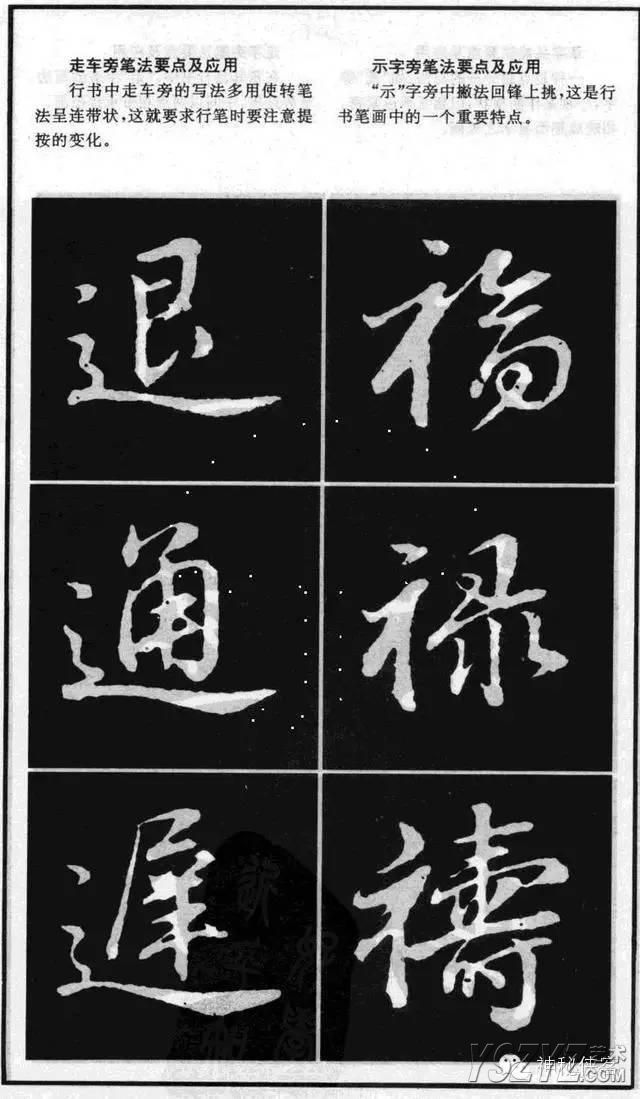 走车旁笔法要点及应用
行书中走车旁的写法多用使转笔
法呈连带状，这就要求行笔时要注意提
按的变化。
示字旁笔法要点及应用
“示”字旁中撇法回锋上挑，这是行
书笔画中的一个重要特点。
退
福
通
禄
遲
禱
神秘侠客